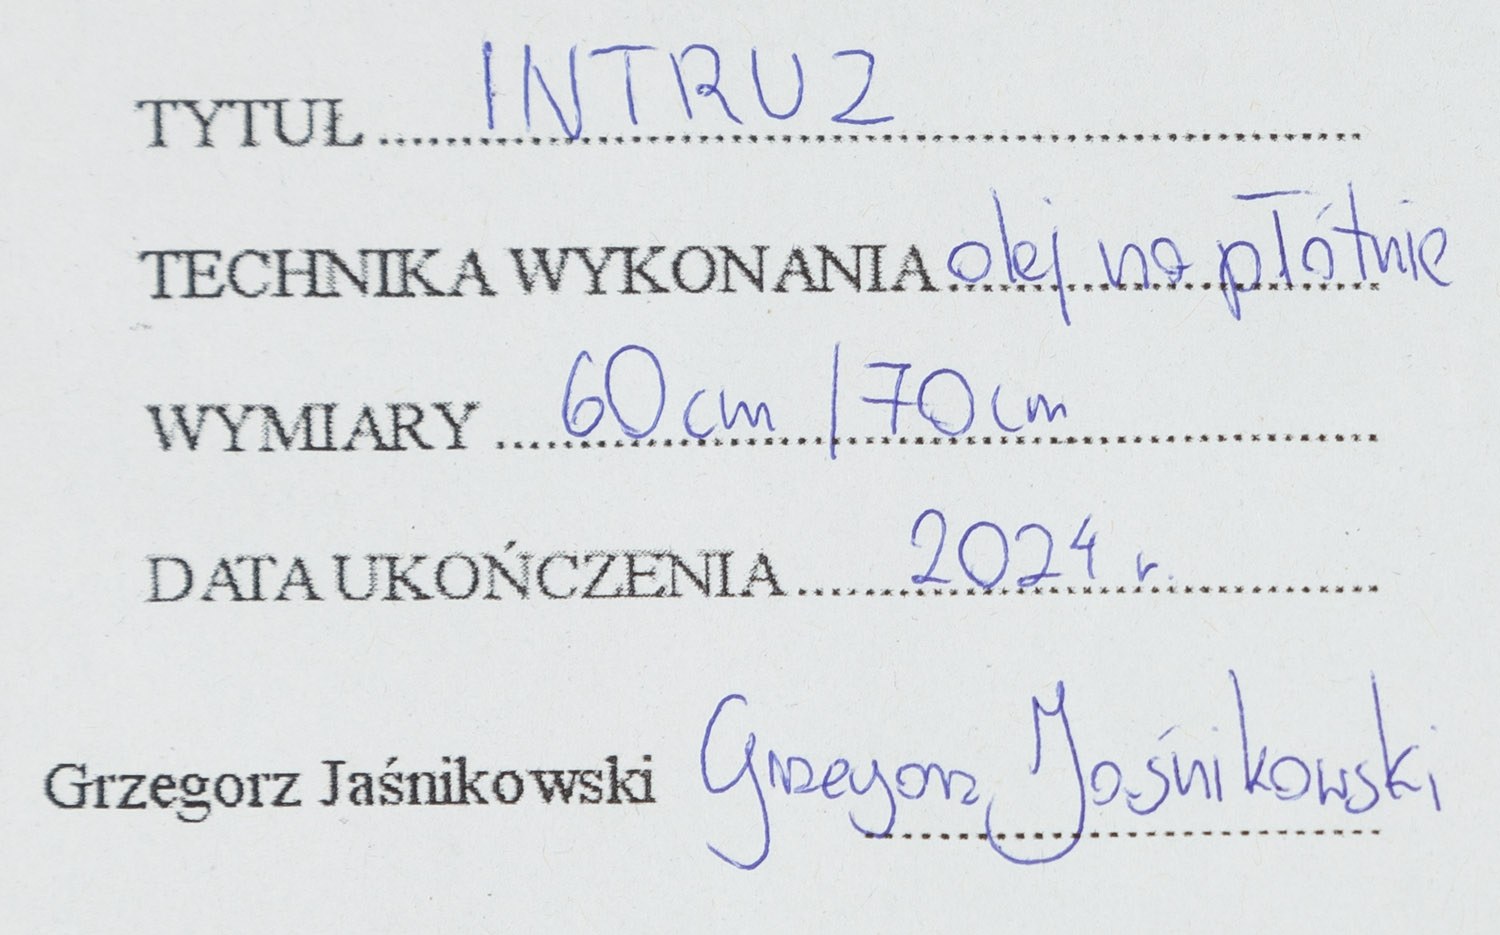 TYTUŁ INTRUZ
TECHNIKA WYKONANIA olej na płótnie
WYMIARY 60cm / 70cm
DATA UKOŃCZENIA 2024 r.
Grzegorz Jaśnikowski Grzegorz Jaśnikowski